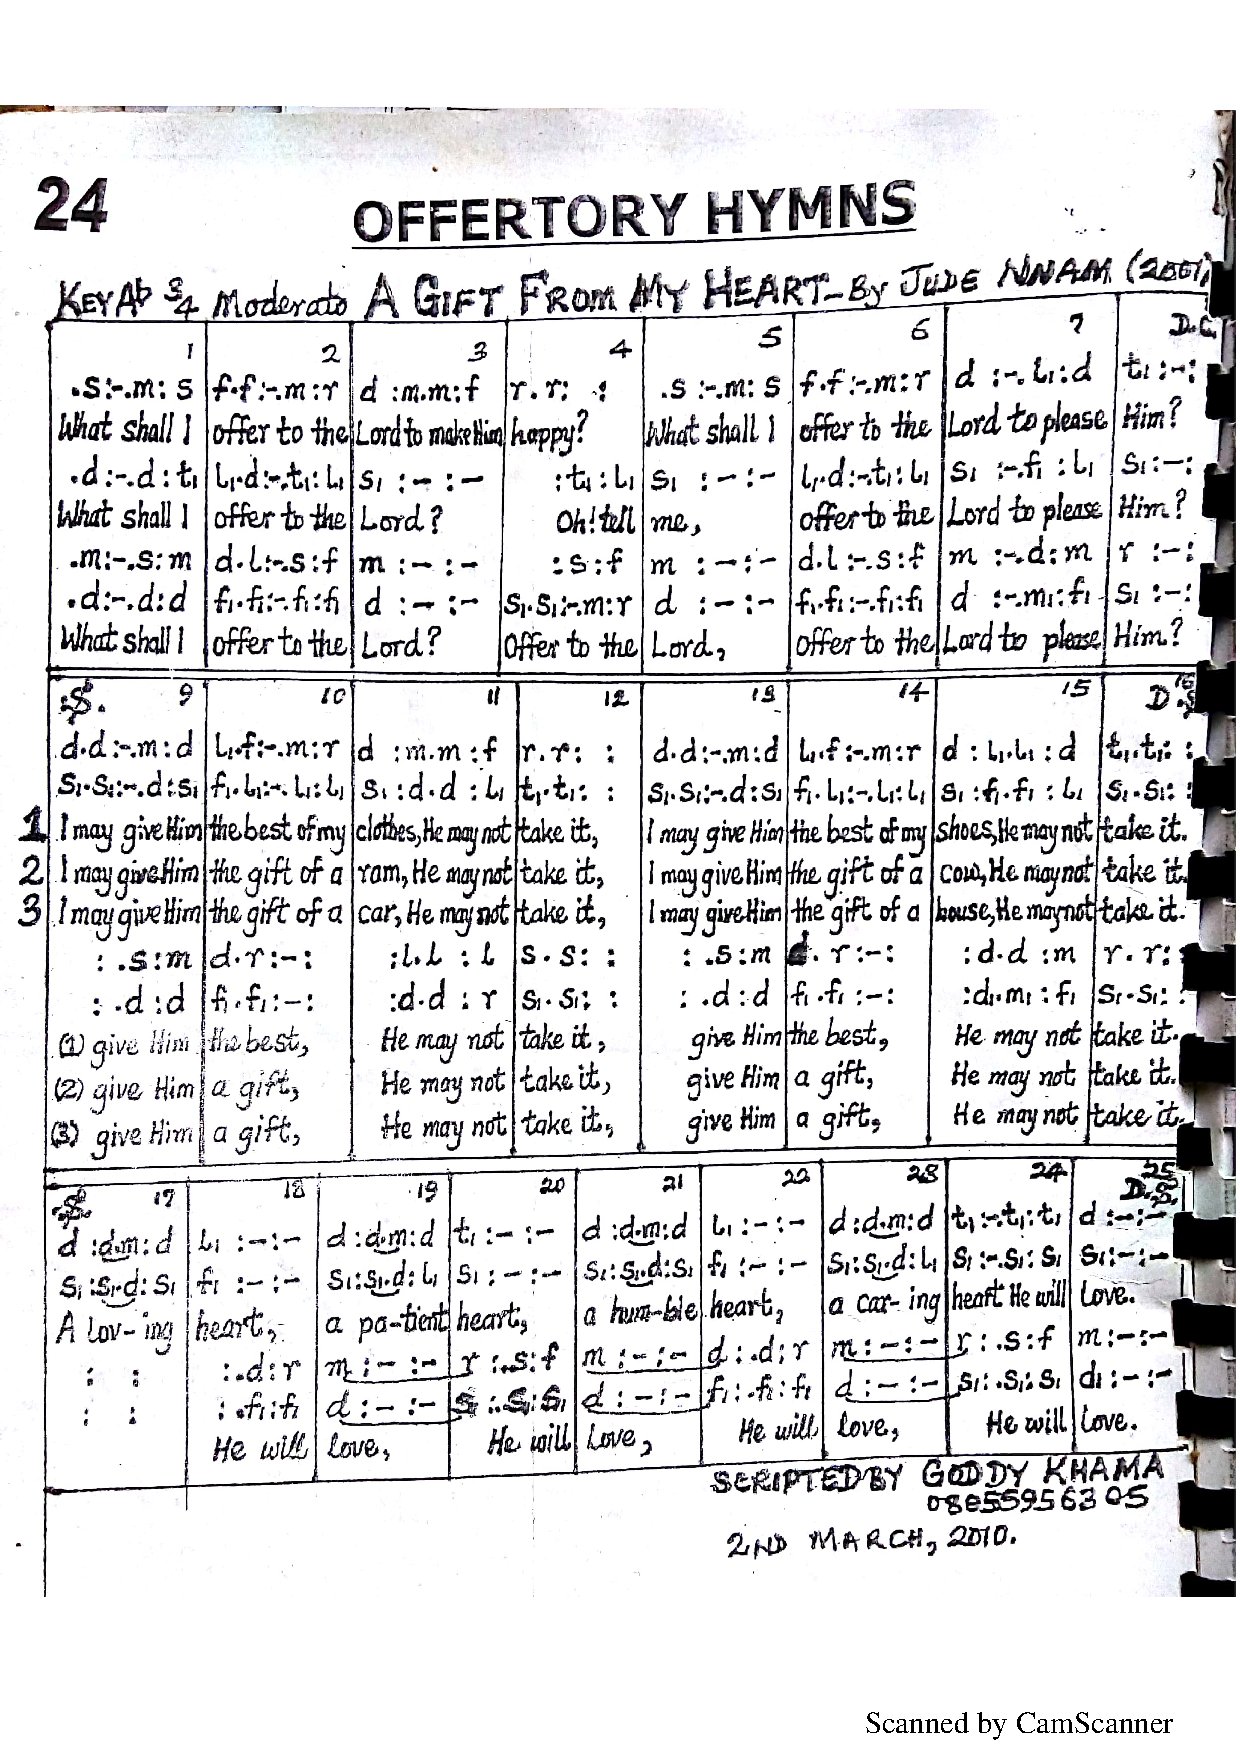 24
OFFERTORY HYMNS
KEY Ab 3/4 Moderato A GIFT FROM MY HEART - By JUDE NNAM (2001)
1 2 3 4 5 6 7 D.C.
.s:-.m: s | f.f:-.m:r | d :m.m:f | r.r: : | .s:-.m: s | f.f:-.m:r | d :-.l₁:d | t₁:-:
What shall I | offer to the | Lord to make Him | happy? | What shall I | offer to the | Lord to please | Him?
.d:-.d:t₁ | l₁.d:-.t₁:l₁ | s₁ :-:- | :t₁:l₁ | s₁ :-:- | l₁.d:-.t₁:l₁ | s₁ :-.f₁:l₁ | s₁:-:
What shall I | offer to the | Lord? | Oh! tell | me, | offer to the | Lord to please | Him?
.m:-.s:m | d.l:-.s:f | m :-:- | :s:f | m :-:- | d.l:-.s:f | m :-.d:m | r :-:
.d:-.d:d | f₁.f₁:-.f₁:f₁ | d :-:- | s₁.s₁:-.m:r | d :-:- | f₁.f₁:-.f₁:f₁ | d :-.m₁:f₁ | s₁:-:
What shall I | offer to the | Lord? | Offer to the | Lord, | offer to the | Lord to please | Him?
:S. 9 10 11 12 13 14 15 16 D.S
d.d:-.m:d | l₁.f:-.m:r | d :m.m:f | r.r: : | d.d:-.m:d | l₁.f:-.m:r | d :l₁.l₁:d | t₁.t₁: :
s₁.s₁:-.d:s₁ | f₁.l₁:-.l₁:l₁ | s₁:d.d:l₁ | t₁.t₁: : | s₁.s₁:-.d:s₁ | f₁.l₁:-.l₁:l₁ | s₁:f₁.f₁:l₁ | s₁.s₁: :
1 I may give Him | the best of my | clothes, He may not | take it, | I may give Him | the best of my | shoes, He may not | take it.
2 I may give Him | the gift of a | ram, He may not | take it, | I may give Him | the gift of a | cow, He may not | take it.
3 I may give Him | the gift of a | car, He may not | take it, | I may give Him | the gift of a | house, He may not | take it.
: .s:m | d.r:-: | :l.l:l | s.s: : | : .s:m | d.r:-: | :d.d:m | r.r: :
: .d:d | f₁.f₁:-: | :d.d:r | s₁.s₁: : | : .d:d | f₁.f₁:-: | :d₁.m₁:f₁ | s₁.s₁: :
(1) give Him | the best, | He may not | take it, | give Him | the best, | He may not | take it.
(2) give Him | a gift, | He may not | take it, | give Him | a gift, | He may not | take it.
(3) give Him | a gift, | He may not | take it, | give Him | a gift, | He may not | take it.
:S. 17 18 19 20 21 22 23 24 25 D.S.
d :d.m:d | l₁ :-:- | d:d.m:d | t₁ :-:- | d:d.m:d | l₁ :-:- | d:d.m:d | t₁:-.t₁:t₁ | d :-:-
s₁:s₁.d:s₁ | f₁ :-:- | s₁:s₁.d:l₁ | s₁ :-:- | s₁:s₁.d:s₁ | f₁ :-:- | s₁:s₁.d:l₁ | s₁:-.s₁:s₁ | s₁:-:-
A lov-ing | heart, | a pa-tient | heart, | a hum-ble | heart, | a car-ing | heart He will | love.
: : | :.d:r | m :-:- | r :.s:f | m :-:- | d :.d:r | m :-:- | r :.s:f | m:-:-
: : | :.f₁:f₁ | d :-:- | s₁:.s₁:s₁ | d :-:- | f₁:.f₁:f₁ | d :-:- | s₁:.s₁:s₁ | d₁:-:-
He will | love, | He will | love, | He will | love, | He will | love.
SCRIPTED BY GODDY KHAMA
08055956305
2ND MARCH, 2010.
Scanned by CamScanner